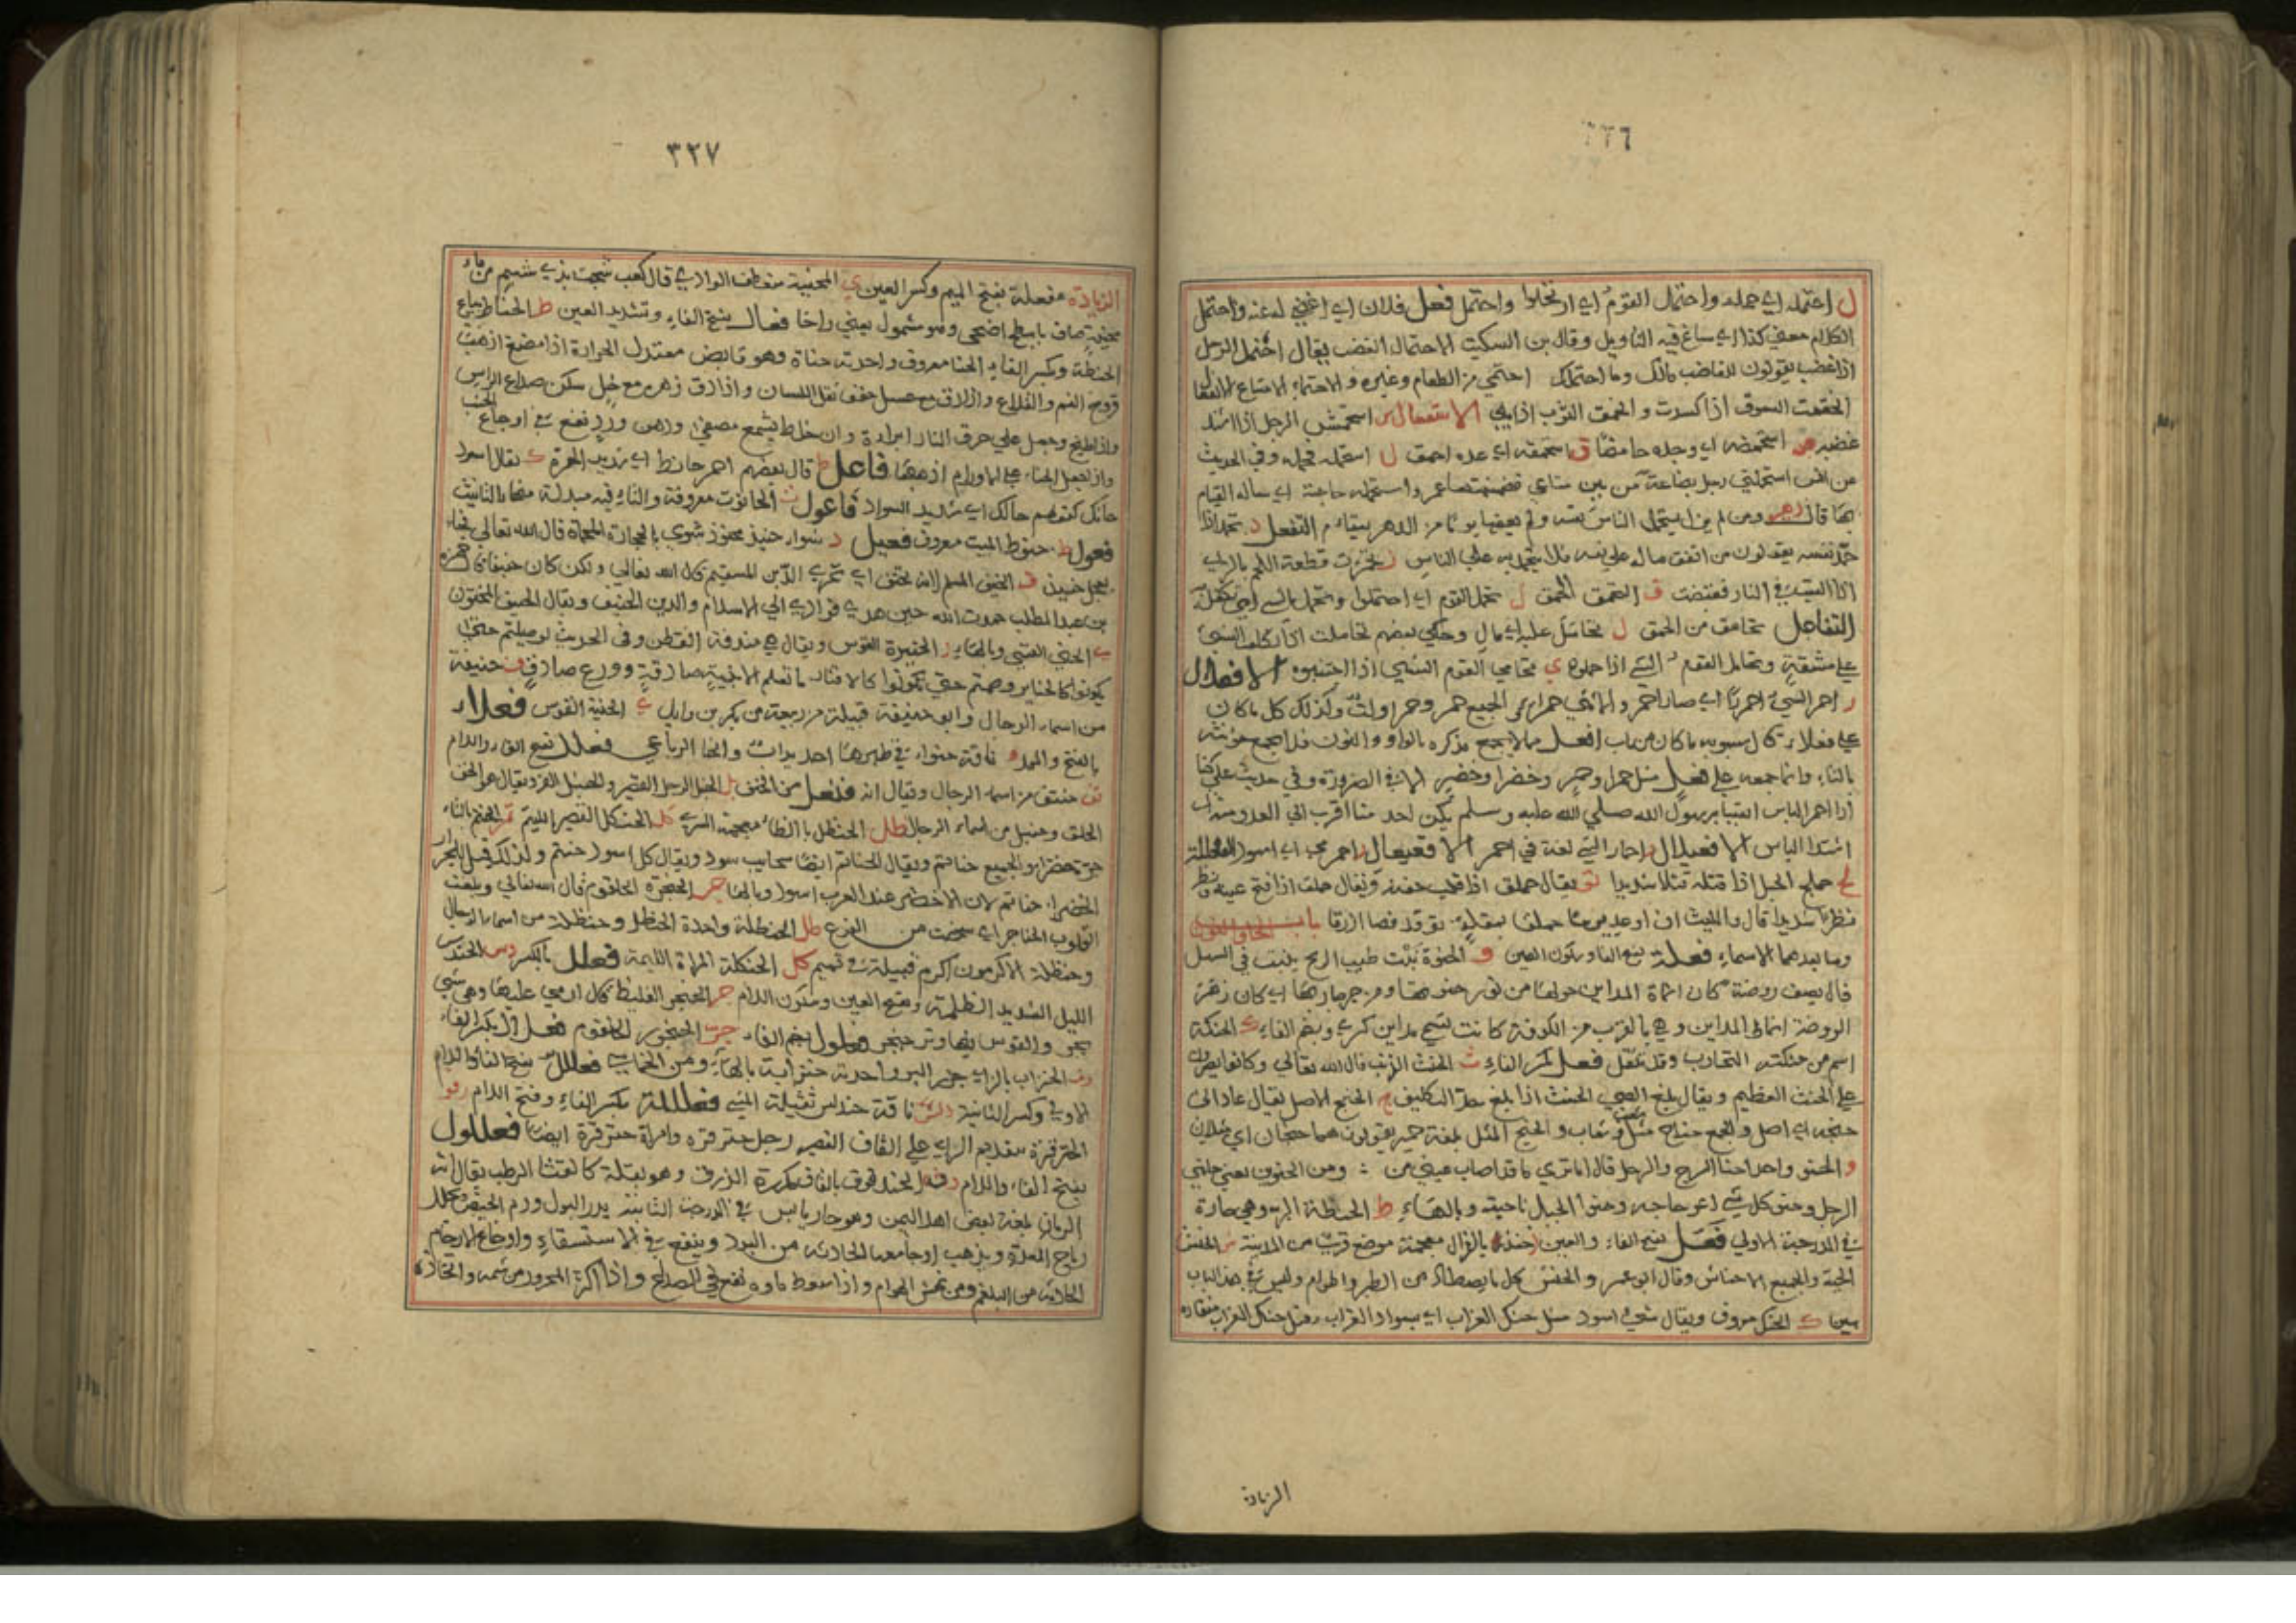 ٣٢٦
ل احتمله اي حمله واحتمل القوم اي ارتحلوا واحتمل فعل فلان اي اغضي له عنه واحتمل
الكلام معني كذا اي ساغ فيه التأويل وقال بن السكيت الاحتمال الغضب يقال احتمل الرجل
اذا غضب يقولون للغاضب مالك وما احتملك احتمي من الطعام وغيره والاحتماء الامتناع
انحمقت السوق اذا كسدت وانحمق الثوب اذا بلي الاستفعال س استحمش الرجل اذا اشتد
غضبه ض استحمضه اي وجده حامضا ق استحمقه اي عده احمق ل استحمله فحمله وفي الحديث
عن انس استحملني رجل بضاعة من بين متاعي فضمنتها عمر واستحمله حاجة اي ساله القيام
بها قال زهير ومن لم يزل يستحمل الناس نفسه ولم يعفها يوما من الدهر يسام التفعل د تحمد اذا
حمد نفسه يقولون من انفق ماله علي نفسه فلا يتحمد به علي الناس قطعة اللحم بالراي
اذا القيت في النار فتقبضت ق التحمق الحمق ل تحمل القوم اي احتملوا وتحمل بالشي اي تكفل به
التفاعل تحامق من الحمق ل تحامل عليه اي مال وحكي بعضهم تحاملت اذا تكلفت الشي
علي مشقة وتحامل القوم الشي اذا حملوه ي تحامي القوم الشي اذا اجتنبوه الافعلال
ر احمر الشي احمرارا اي صار احمر والانثي حمراء والجميع حمر وحمراوات وكذلك كل ما كان
علي فعلاء قال سيبويه ما كان من باب افعل مما لا يجمع مذكره بالواو والنون فلا يجمع مؤنثه
بالتاء وانما جمعه علي فعل مثل حمرا وحمر وخضرا وخضر الا في الضرورة وفي حديث علي كنا
اذا احمر الباس اتقينا برسول الله صلي الله عليه وسلم فلم يكن احد منا اقرب الي العدو منه اي
اشتد الباس الافعيلال ر احمار الشي لغة في احمر الافعيعال
لج حملج الحبل اذا فتله فتلا شديدا لق يقال حملق اذا قلب جفنه ويقال حملق اذا فتح عينيه ونظر
نظرا شديدا قال والليث ان اوعد يوما حملقا بمقلة توقد فصا ازرقا باب الحاء والنون
وما بعدهما الاسماء فعلة بفتح الفاء وسكون العين و الحنوة نبت طيب الريح ينبت في السهل
قال يصف روضة كان انماط المداين حولها من نور حنوتها ومن جرجارها اي كان زهر
الروضة انماط المداين وهي بالقرب من الكوفة كانت تسمي مداين كسري وبضم الفاء ك الحنكة
اسم من حنكته التجارب وقد تثقل فعل بكسر الفاء ث الحنث الذنب قال الله تعالي وكانوا يصرون
علي الحنث العظيم ويقال بلغ الصبي الحنث اذا بلغ حد التكليف ج الحنج الاصل يقال عاد الي
حنجه اي اصله والجمع حناج مثل شعب وشعاب والحنج المثل بلغة حمير يقولون هما حنجان اي مثلان
و الحنو واحد احنا السرج والرحل قال اما تري ما قد اصاب عيني من ومن الحنوين يعني جانبي
الرحل وحنو كل شي اعوجاجه وحنو الجبل ناحيته وبالهاء ط الحنطة البر وهي حارة
في الدرجة الاولي فعل بفتح الفاء والعين حنذ بالذال معجمة موضع قرب من المدينة ش الحنش
الحية والجميع الاحناش وقال ابو عمرو الحنش كل ما يصطاد من الطير والهوام وليس في هذا الباب
سين ك الحنك معروف ويقال شي اسود مثل حنك الغراب اي بسواد الغراب وقيل حنك الغراب منقاره
الزيادة
٣٢٧
الزيادة مفعلة بفتح الميم وكسر العين ي المحنية منعطف الوادي قال كعب شجت بذي شبم من ماء
محنية صاف بابطح اضحي وهو مشمول يعني راحا فعال بفتح الفاء وتشديد العين ط الحناط بياع
الحنطة وبكسر الفاء الحنا معروف واحدته حناة وهو قابض معتدل الحرارة اذا مضغ اذهب
قروح الفم والقلاع واذا دق مع عسل خفف ثقل اللسان واذا دق زهره مع خل سكن صداع الراس
واذا طبخ وجعل علي حرق النار ابراه وان خلط بشمع مصفي ودهن ورد نفع في اوجاع الجنب
واذا جعل الحناء علي الاورام اذهبها فاعل ط قال بعضهم احمر حانط اي شديد الحمرة ك يقال اسود
حانك كقولهم حالك اي شديد السواد فاعول ت الحانوت معروفة والتاء فيه مبدلة من هاء التانيث
فعول ط حنوط الميت معروف فعيل ذ شواء حنيذ محنوذ شوي بالحجارة المحماة قال الله تعالي فجاء
بعجل حنيذ ف الحنيف المسلم لانه تحنف اي تحري الدين المستقيم قال الله تعالي ولكن كان حنيفا قال حمزة
بن عبد المطلب حمدت الله حين هدي فوادي الي الاسلام والدين الحنيف ويقال الحنيف المختون
ي الحني القسي وبالهاء ر الحنيرة القوس ويقال هي مندفة القطن وفي الحديث لو صليتم حتي
تكونوا كالحناير وصمتم حتي تكونوا كالاوتار ما نفعكم الا بنية صادقة وورع صادق ف حنيفة
من اسماء الرجال وابو حنيفة قبيلة من ربيعة من بكر بن وايل ي الحنية القوس فعلاء
بالفتح والمد و ناقة حنواء في ظهرها احديداب وانحنا الرباعي فعلل بفتح الفاء واللام
تف حنتف من اسماء الرجال ويقال انه فنعل من الحتف بل الحنبل الرجل القصير والحنبل الفرو يقال هو الخف
الخلق وحنبل من اسماء الرجال ظل الحنظل بالظاء معجمة الشري كل الحنكل القصير اللئيم تم الحنتم بالتاء
جرة خضراء والجميع حناتم ويقال الحناتم ايضا سحايب سود ويقال كل اسود حنتم ولذلك قيل للجرار
الخضراء حناتم لان الاخضر عند العرب اسود وبالهاء جر الحنجرة الحلقوم قال الله تعالي وبلغت
القلوب الحناجر اي شخصت من الفزع ظل الحنظلة واحدة الحنظل وحنظلة من اسماء الرجال
وحنظلة الاكرمون اكرم قبيلة في تميم كل الحنكلة المراة الدميمة فعلل بالكسر دس الحندس
الليل الشديد الظلمة وبفتح العين وسكون اللام جر الحنجر الغليظ قال ارمي عليها وهي شي
بجر والقوس فيها وتر حنجر فعلول بضم الفاء جر الحنجور الحلقوم فعلال بكسر الفاء
زب الحنزاب بالزاي جزر البر واحدته حنزابة بالهاء ومن الخماسي فعللل بفتح الفاء واللام
الاولي وكسر الثانية دلس ناقة حندلس ثقيلة المشي فعللة بكسر الفاء وفتح اللام زقر
الحنزقرة بتقديم الزاي علي القاف القصير رجل حنزقرة وامراة حنزقرة ايضا فعللول
بفتح الفاء واللام دق الحندقوق بالقاف مكررة الذرق وهو بقلة كالقت الرطب يقال انه
الرمان بلغة بعض اهل اليمن وهو حار يابس في الدرجة الثانية يدر البول ودم الحيض ويحلل
رياح المعدة ويذهب اوجاعها الحادثة من البرد وينفع في الاستسقاء واوجاع الارحام
الحادثة من البلغم ومن نهش الهوام واذا سعط ماوه نفع في الصداع واذا اكثر المحرور من شمه واتخاذه